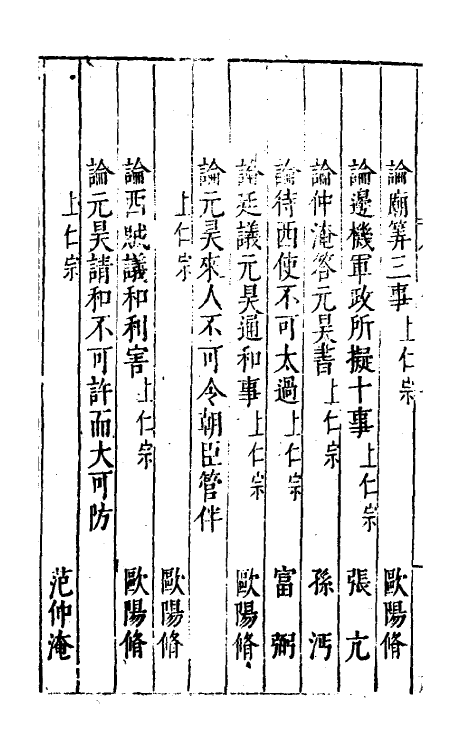 論廟筭三事上仁宗　歐陽脩
論邊機軍政所擬十事上仁宗　張亢
論仲淹答元昊書上仁宗　孫沔
論待西使不可太過上仁宗　富弼
論廷議元昊通和事上仁宗　歐陽脩
論元昊來人不可令朝臣管伴
上仁宗　歐陽脩
論西賊議和利害上仁宗　歐陽脩
論元昊請和不可許而大可防
上仁宗　范仲淹